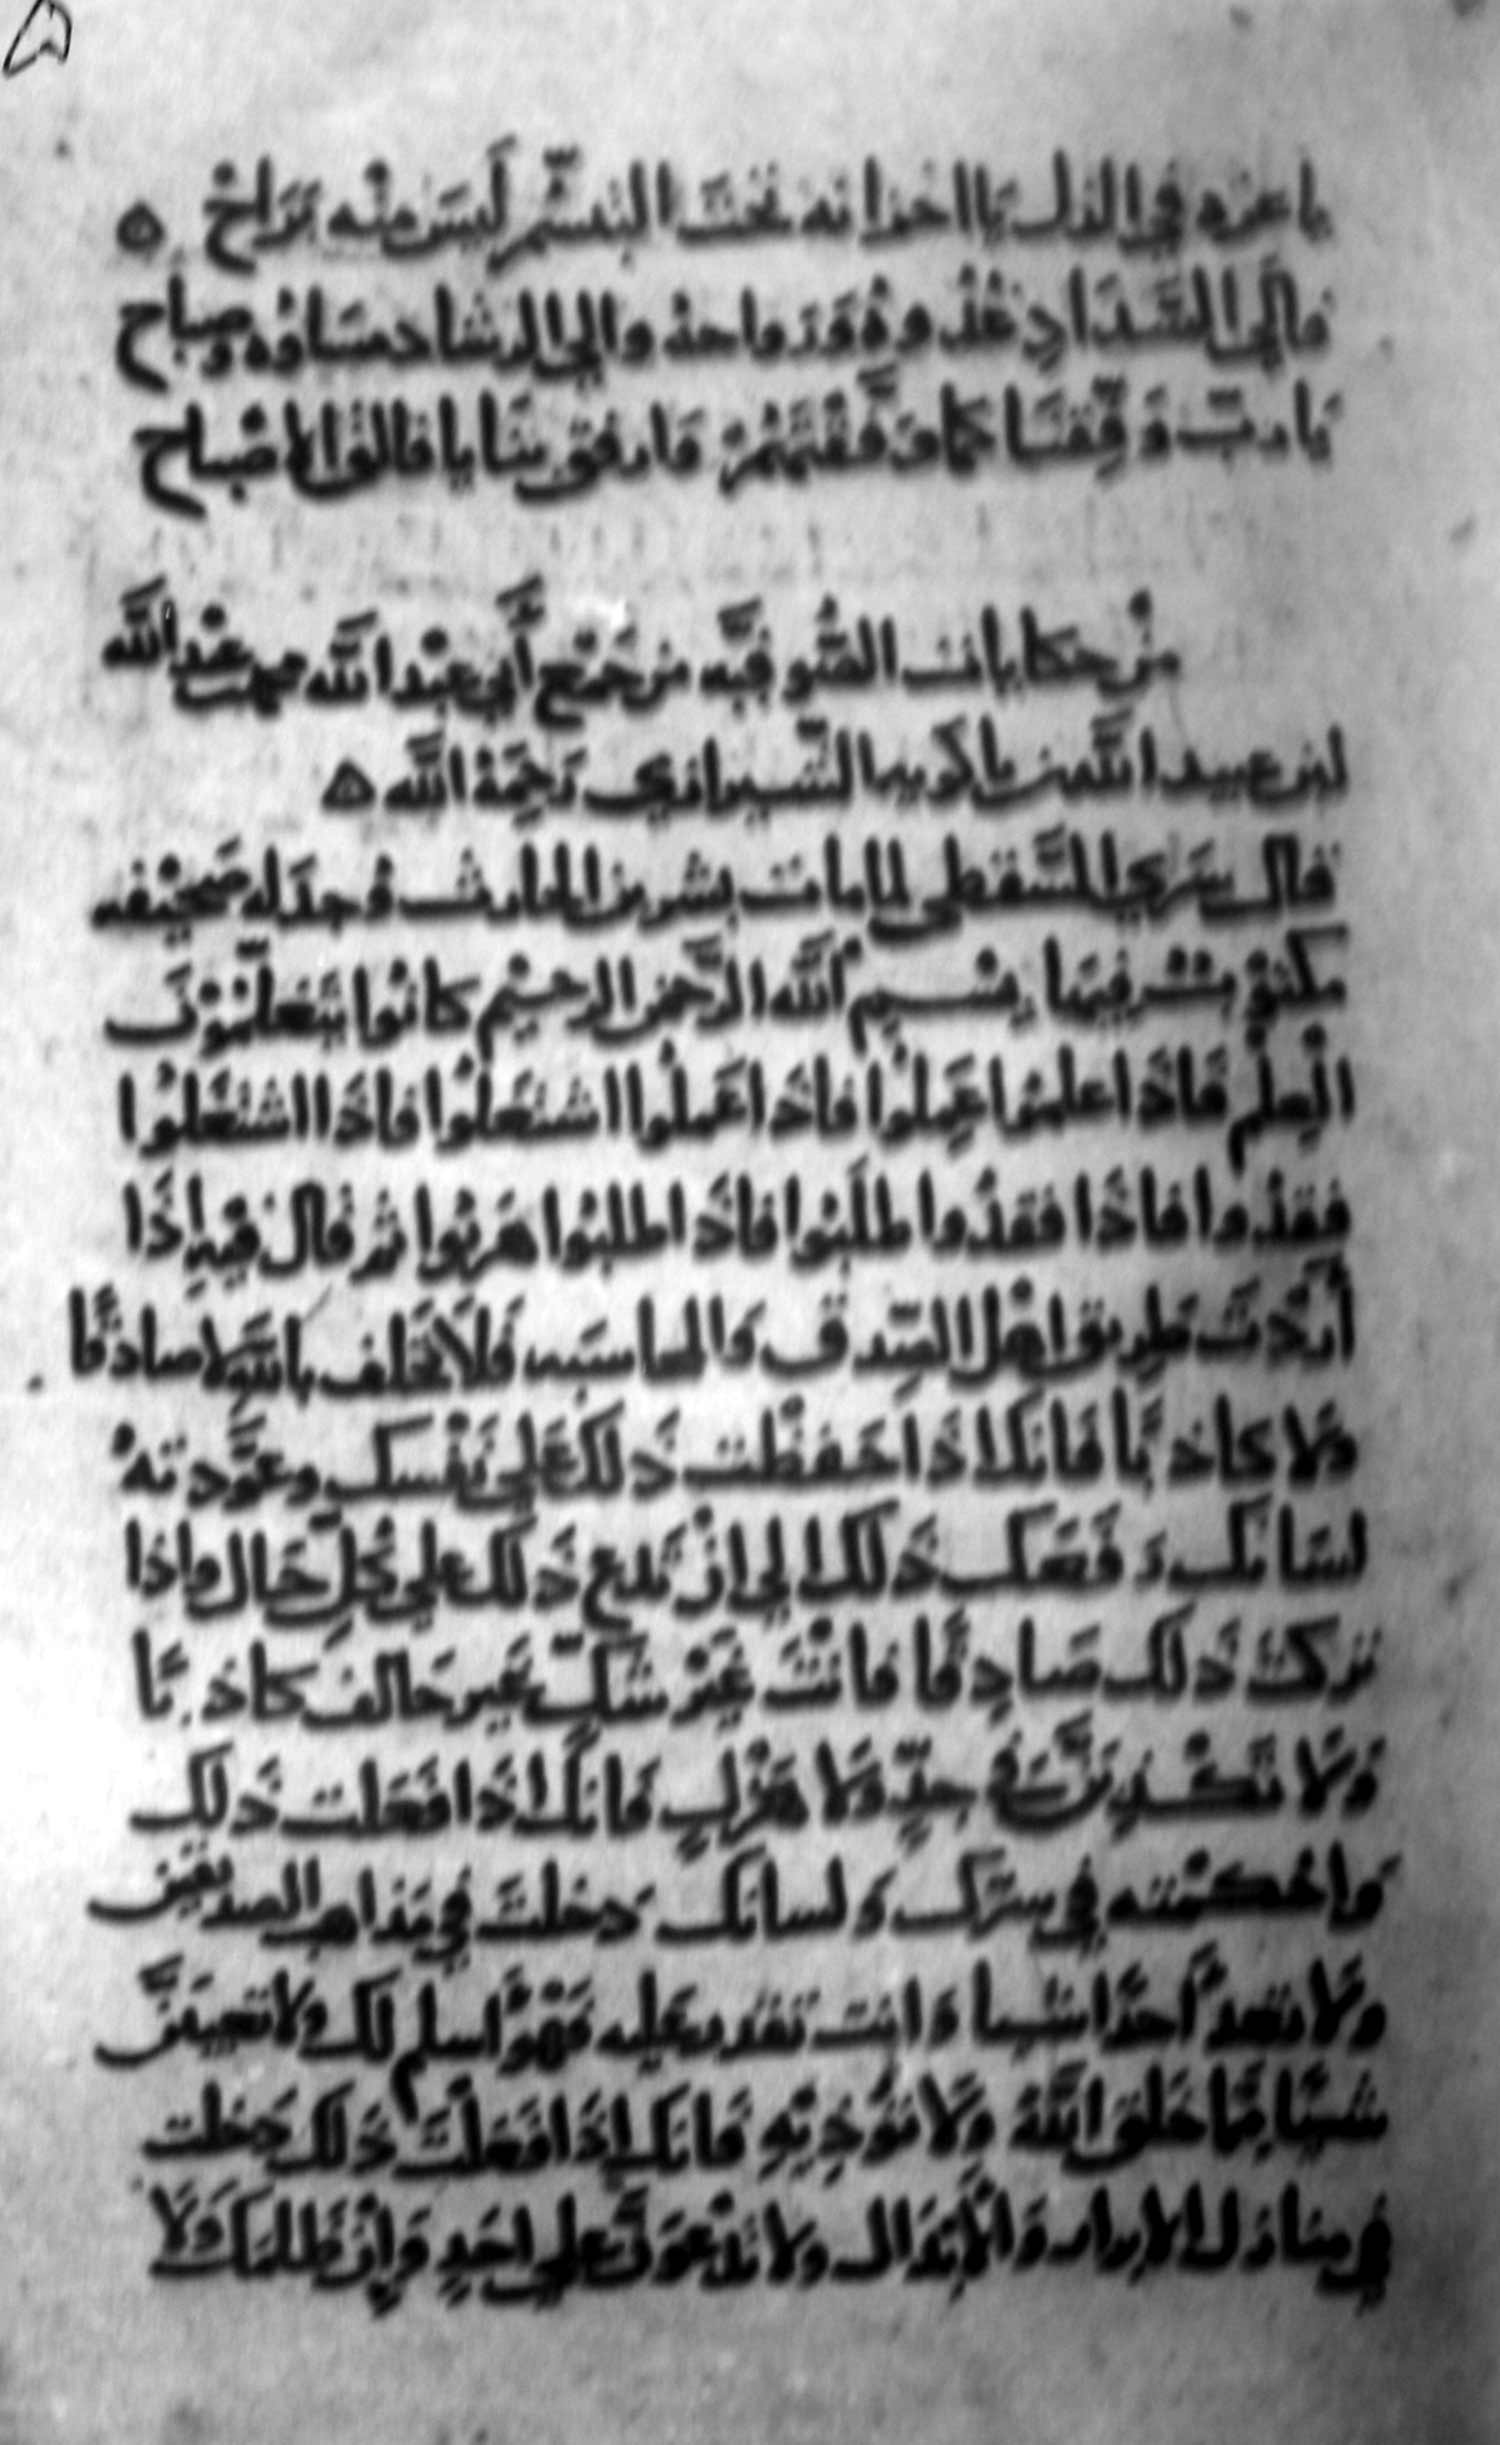 يا عزه في الذل يا احزانه تحت التبسّم لَيسَ منْه بَرَاحُ ه
فالَى السَّدَادِ غُدُوهُ وَرَواحهُ والي الرشاد مسَاؤه وصباح
يَا ربّ وَفِّقنَا كما وَفَّقْتَهُمْ وَارفق بنَا يا فالق الاصْباح
منْ حكايات الصُّوفيَّه من جَمْع أبي عبْد الله محمد بن عبْد الله
ابن عبيد الله بن باكويه الشيرازي رَحِمَهُ الله ه
قال سَرَي السَّقطي لما مات بشر بن الحارث وُجدَ له صَحيْفه
مكتوْب فيها بِسْم الله الرَّحمن الرحيْم كانُوا يَتَعلّمُونَ
الْعِلْم فَاذَا علمُوا عَمِلوُا فاذَا عَملُوا اشتغَلوُا فاذَا اشتغَلوُا
فقدُوا فاذَا فقدُوا طلَبُوا فاذَا طلبُوا هَربُوا ثم قال فيْهِ اِذَا
أرَدْتَ طَريق اهْل الصِّدق وَالمحاسَبه فَلَا تَحْلف باللهِ لا صادقًا
وَلا كاذبًا فانك اذَا حَفظْت ذَلك عَلى نَفْسك وعوَّدتهُ
لسَانك رَفَعَك ذَلك الي انْ تدع ذَلك علي كُلّ حَال واذا
تركتَ ذَلك صَادِقًا فانْتَ غَيْرَ شَكّ غَير حَالف كاذبًا
وَلَا تَكْذِبَنَّ في جِدٍّ وَلا هَزْلٍ فانك اذَا فَعَلت ذَلك
وَاحْكمْته في سرّك وَلسانك دَخلتَ في مَذاهب الصديقين
وَلَا تعدْ أحدًا شيا وَانت تقدر عَليه فَهْوَ أسلم لك ولا تعيبَنَّ
شيئًا ممَّا خلقَ اللهُ وَلَا تؤذيْهِ فانك اِذَا فَعَلْتَ ذَلك دَخلت
في منازل الابرار وَالْابْدَال ولا تدْعوَنَّ علي احَدٍ وَإنْ ظلمك وَلَا